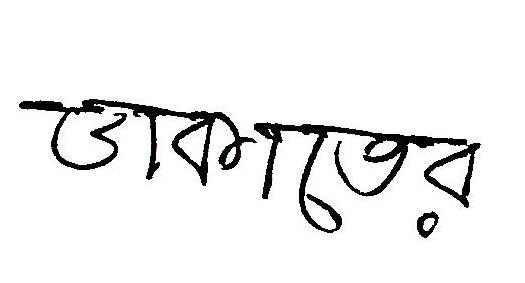 ডাকাতের